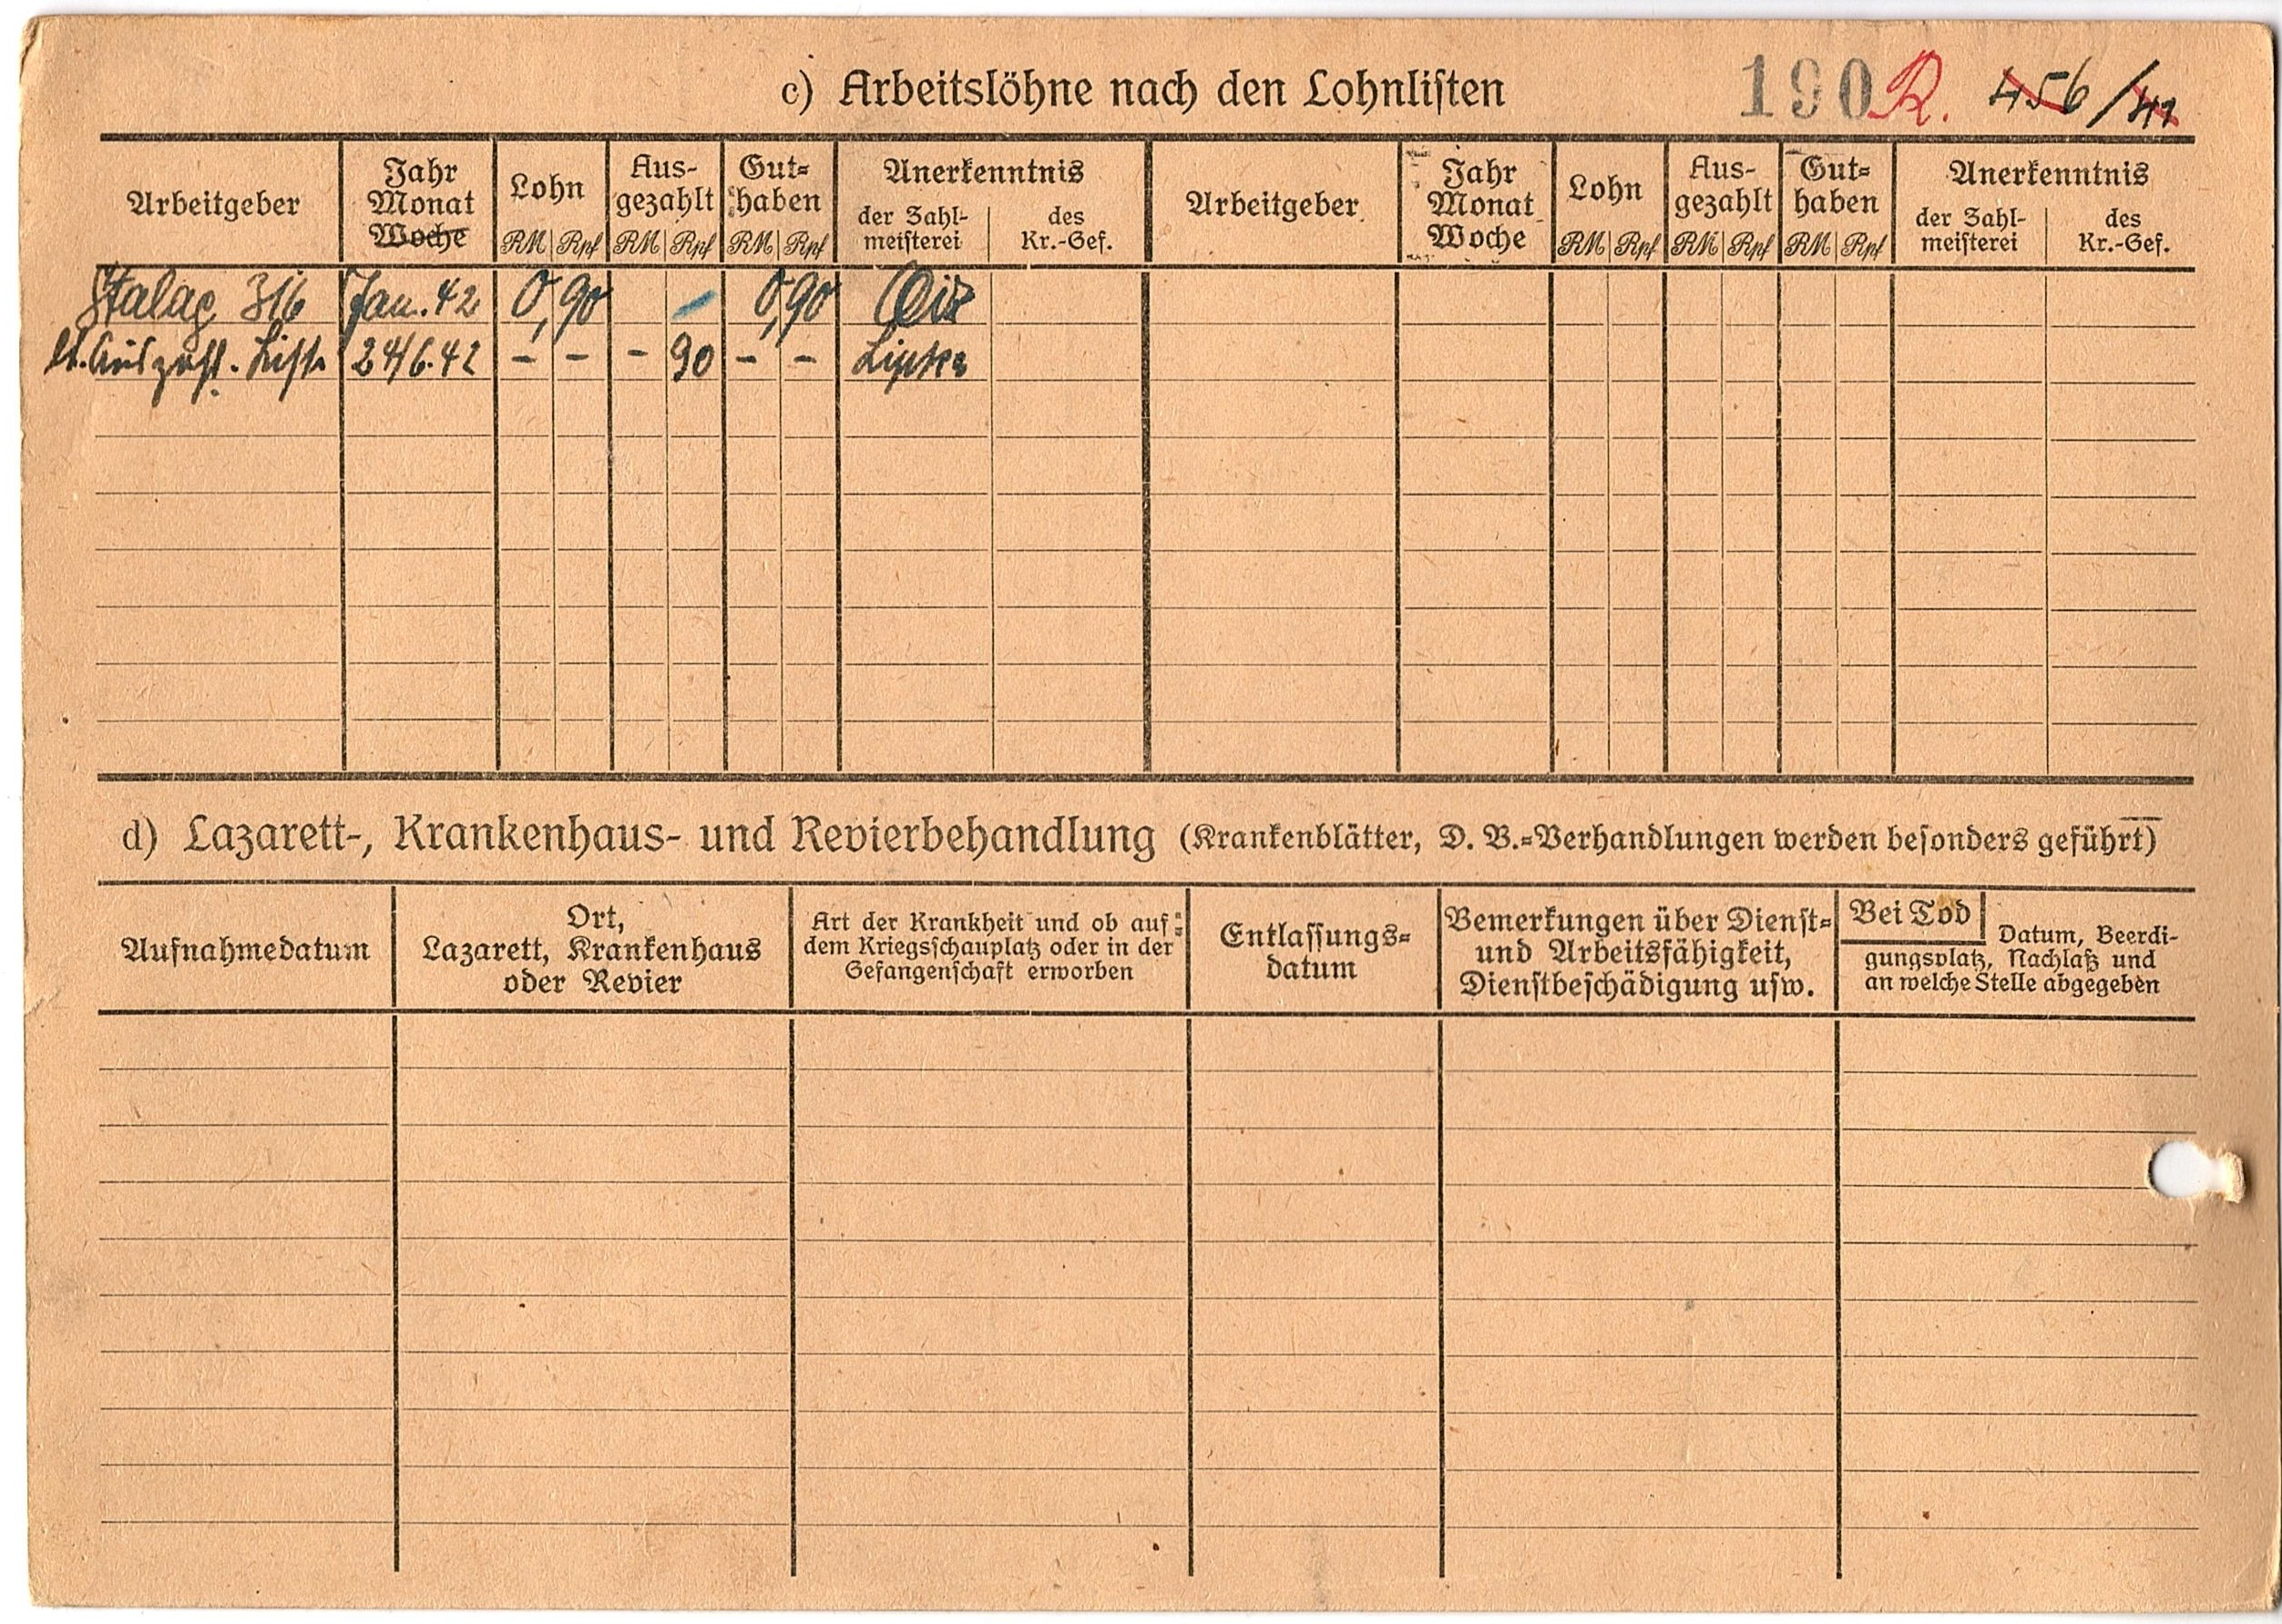 c) Arbeitslöhne nach den Lohnlisten 190 R. 456/41
Arbeitgeber Jahr Monat Woche Lohn RM Rpf Aus-gezahlt RM Rpf Gut-haben RM Rpf Anerkenntnis der Zahl-meisterei des Kr.-Gef. Arbeitgeber Jahr Monat Woche Lohn RM Rpf Aus-gezahlt RM Rpf Gut-haben RM Rpf Anerkenntnis der Zahl-meisterei des Kr.-Gef.
Stalag 316 Jan. 42 0,90 - 0,90
lt. Auszahl. Liste 24/6.42 - - - 90 - -
d) Lazarett-, Krankenhaus- und Revierbehandlung (Krankenblätter, D. B.-Verhandlungen werden besonders geführt)
Aufnahmedatum
Ort,
Lazarett, Krankenhaus
oder Revier
Art der Krankheit und ob auf
dem Kriegsschauplatz oder in der
Gefangenschaft erworben
Entlassungs-
datum
Bemerkungen über Dienst-
und Arbeitsfähigkeit,
Dienstbeschädigung usw.
Bei Tod Datum, Beerdi-
gungsplatz, Nachlaß und
an welche Stelle abgegeben